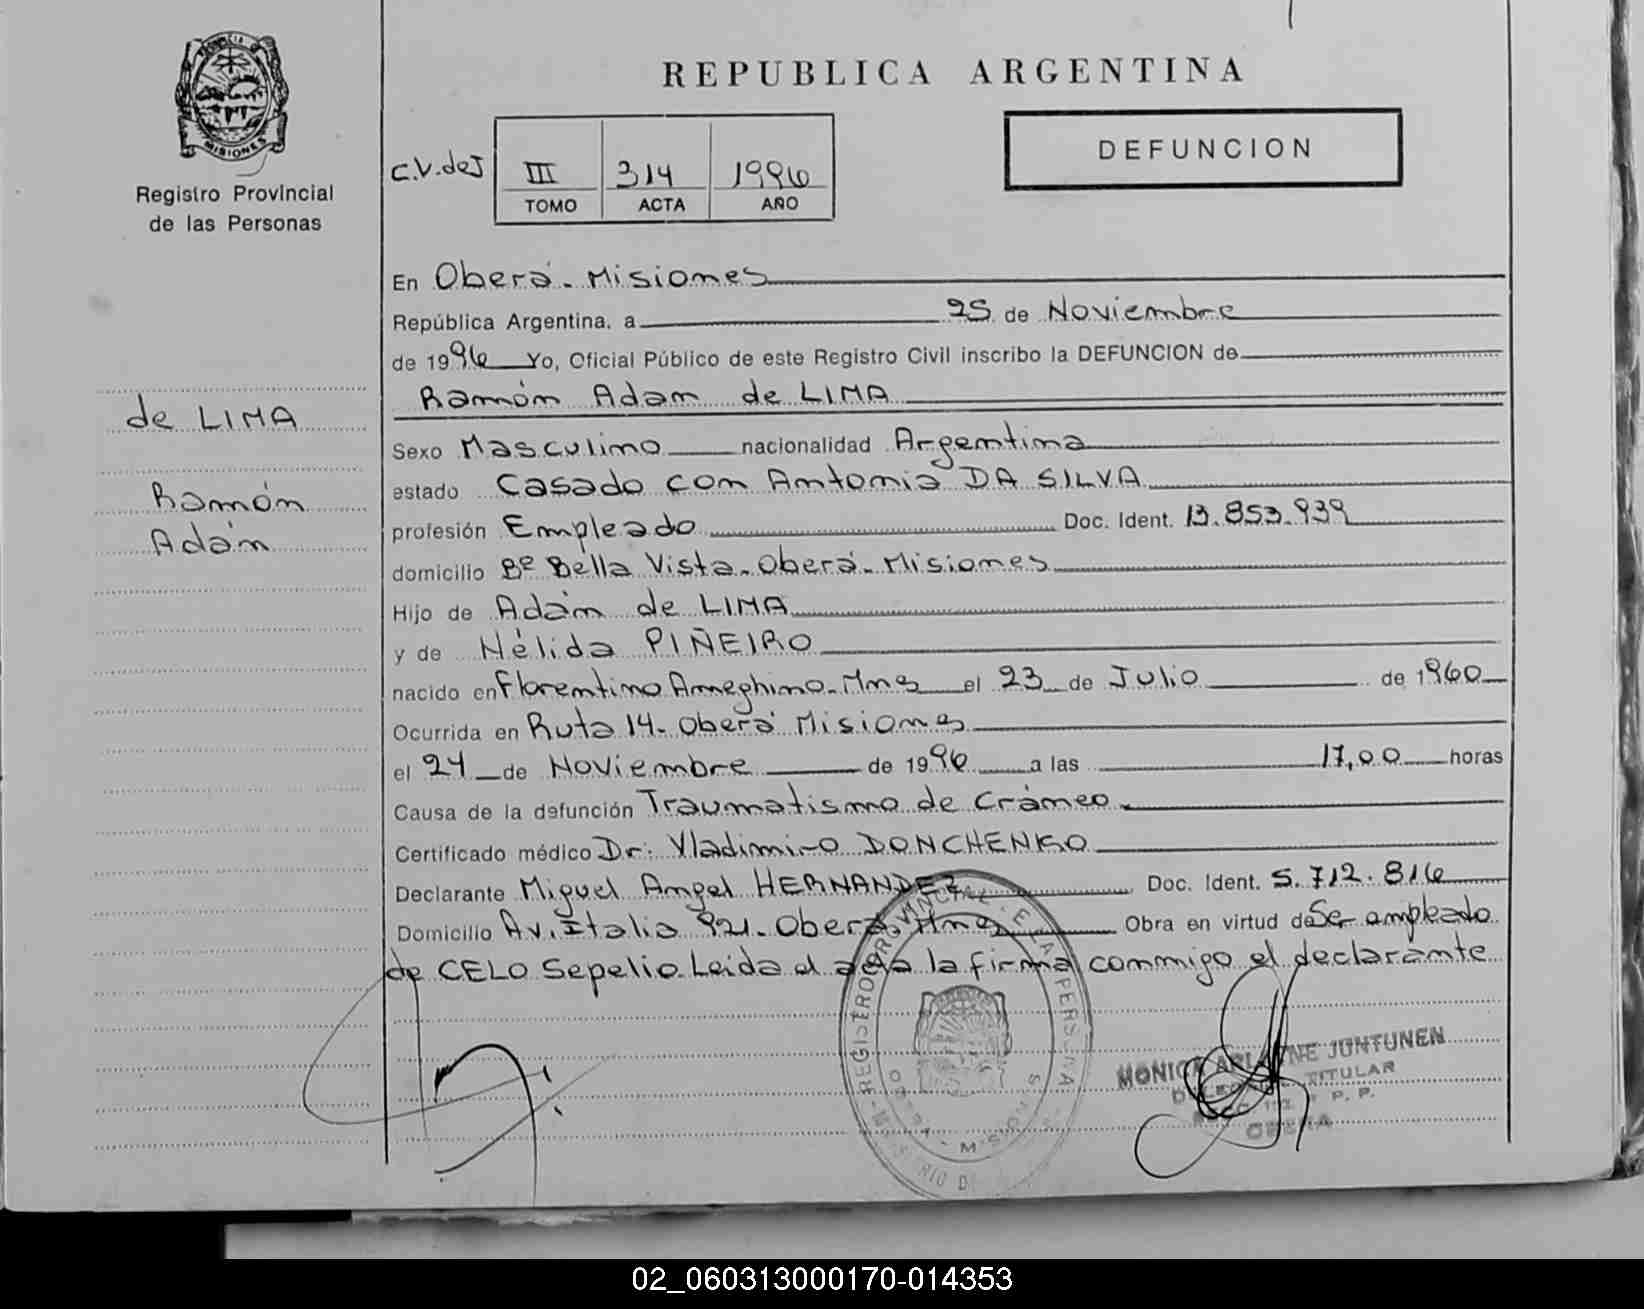 PROVINCIA DE
MISIONES
Registro Provincial
de las Personas
REPUBLICA ARGENTINA
DEFUNCION
C.V.deJ
III 314 1996
TOMO ACTA AÑO
de LIMA
Ramón
Adán
En Oberá - Misiones
República Argentina, a 25 de Noviembre
de 1996 Yo, Oficial Público de este Registro Civil inscribo la DEFUNCION de
Ramón Adam de LIMA
Sexo Masculino nacionalidad Argentina
estado Casado con Antonia DA SILVA
profesión Empleado Doc. Ident. 13.853.939
domicilio Bº Bella Vista - Oberá - Misiones
Hijo de Adán de LIMA
y de Nélida PIÑEIRO
nacido en Florentino Ameghino - Mnes el 23 de Julio de 1960
Ocurrida en Ruta 14 - Oberá Misiones
el 24 de Noviembre de 1996 a las 17,00 horas
Causa de la defunción Traumatismo de Cráneo
Certificado médico Dr: Vladimiro DONCHENKO
Declarante Miguel Angel HERNANDEZ Doc. Ident. 5.712.816
Domicilio Av. Italia 921 - Oberá, Mnes Obra en virtud de Ser empleado
de CELO Sepelio. Leida el acta la firma conmigo el declarante
REGISTRO PROVINCIAL DE LA PERSONA
OBERA - MISIONES
MONICA JUNTUNEN
TITULAR
R. P. P.
OBERA
02_060313000170-014353